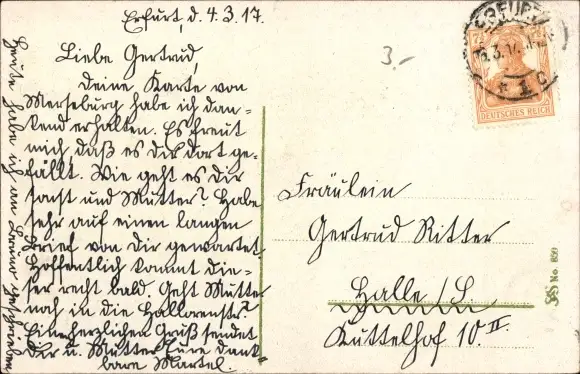 Erfurt, d. 4. 3. 17.
Liebe Gertrud,
Deine Karte von
Merseburg habe ich dan-
kend erhalten. Es freut
mich, daß es Dir dort ge-
fällt. Wie geht es Dir
sonst und Mutter? Habe
sehr auf einen langen
Brief von Dir gewartet.
Hoffentlich kommt die-
ser recht bald. Geht Mutter
noch in die
Einen herzlichen Gruß sendet
Dir u. Mutter Eure dank-
bare Martel.
Heute habe ich an geschrieben
3.-
ERFURT
3.17
* 1 c
7½
DEUTSCHES REICH
Fräulein
Gertrud Ritter
Halle / S.
Kuttelhof 10. II.
No. 859